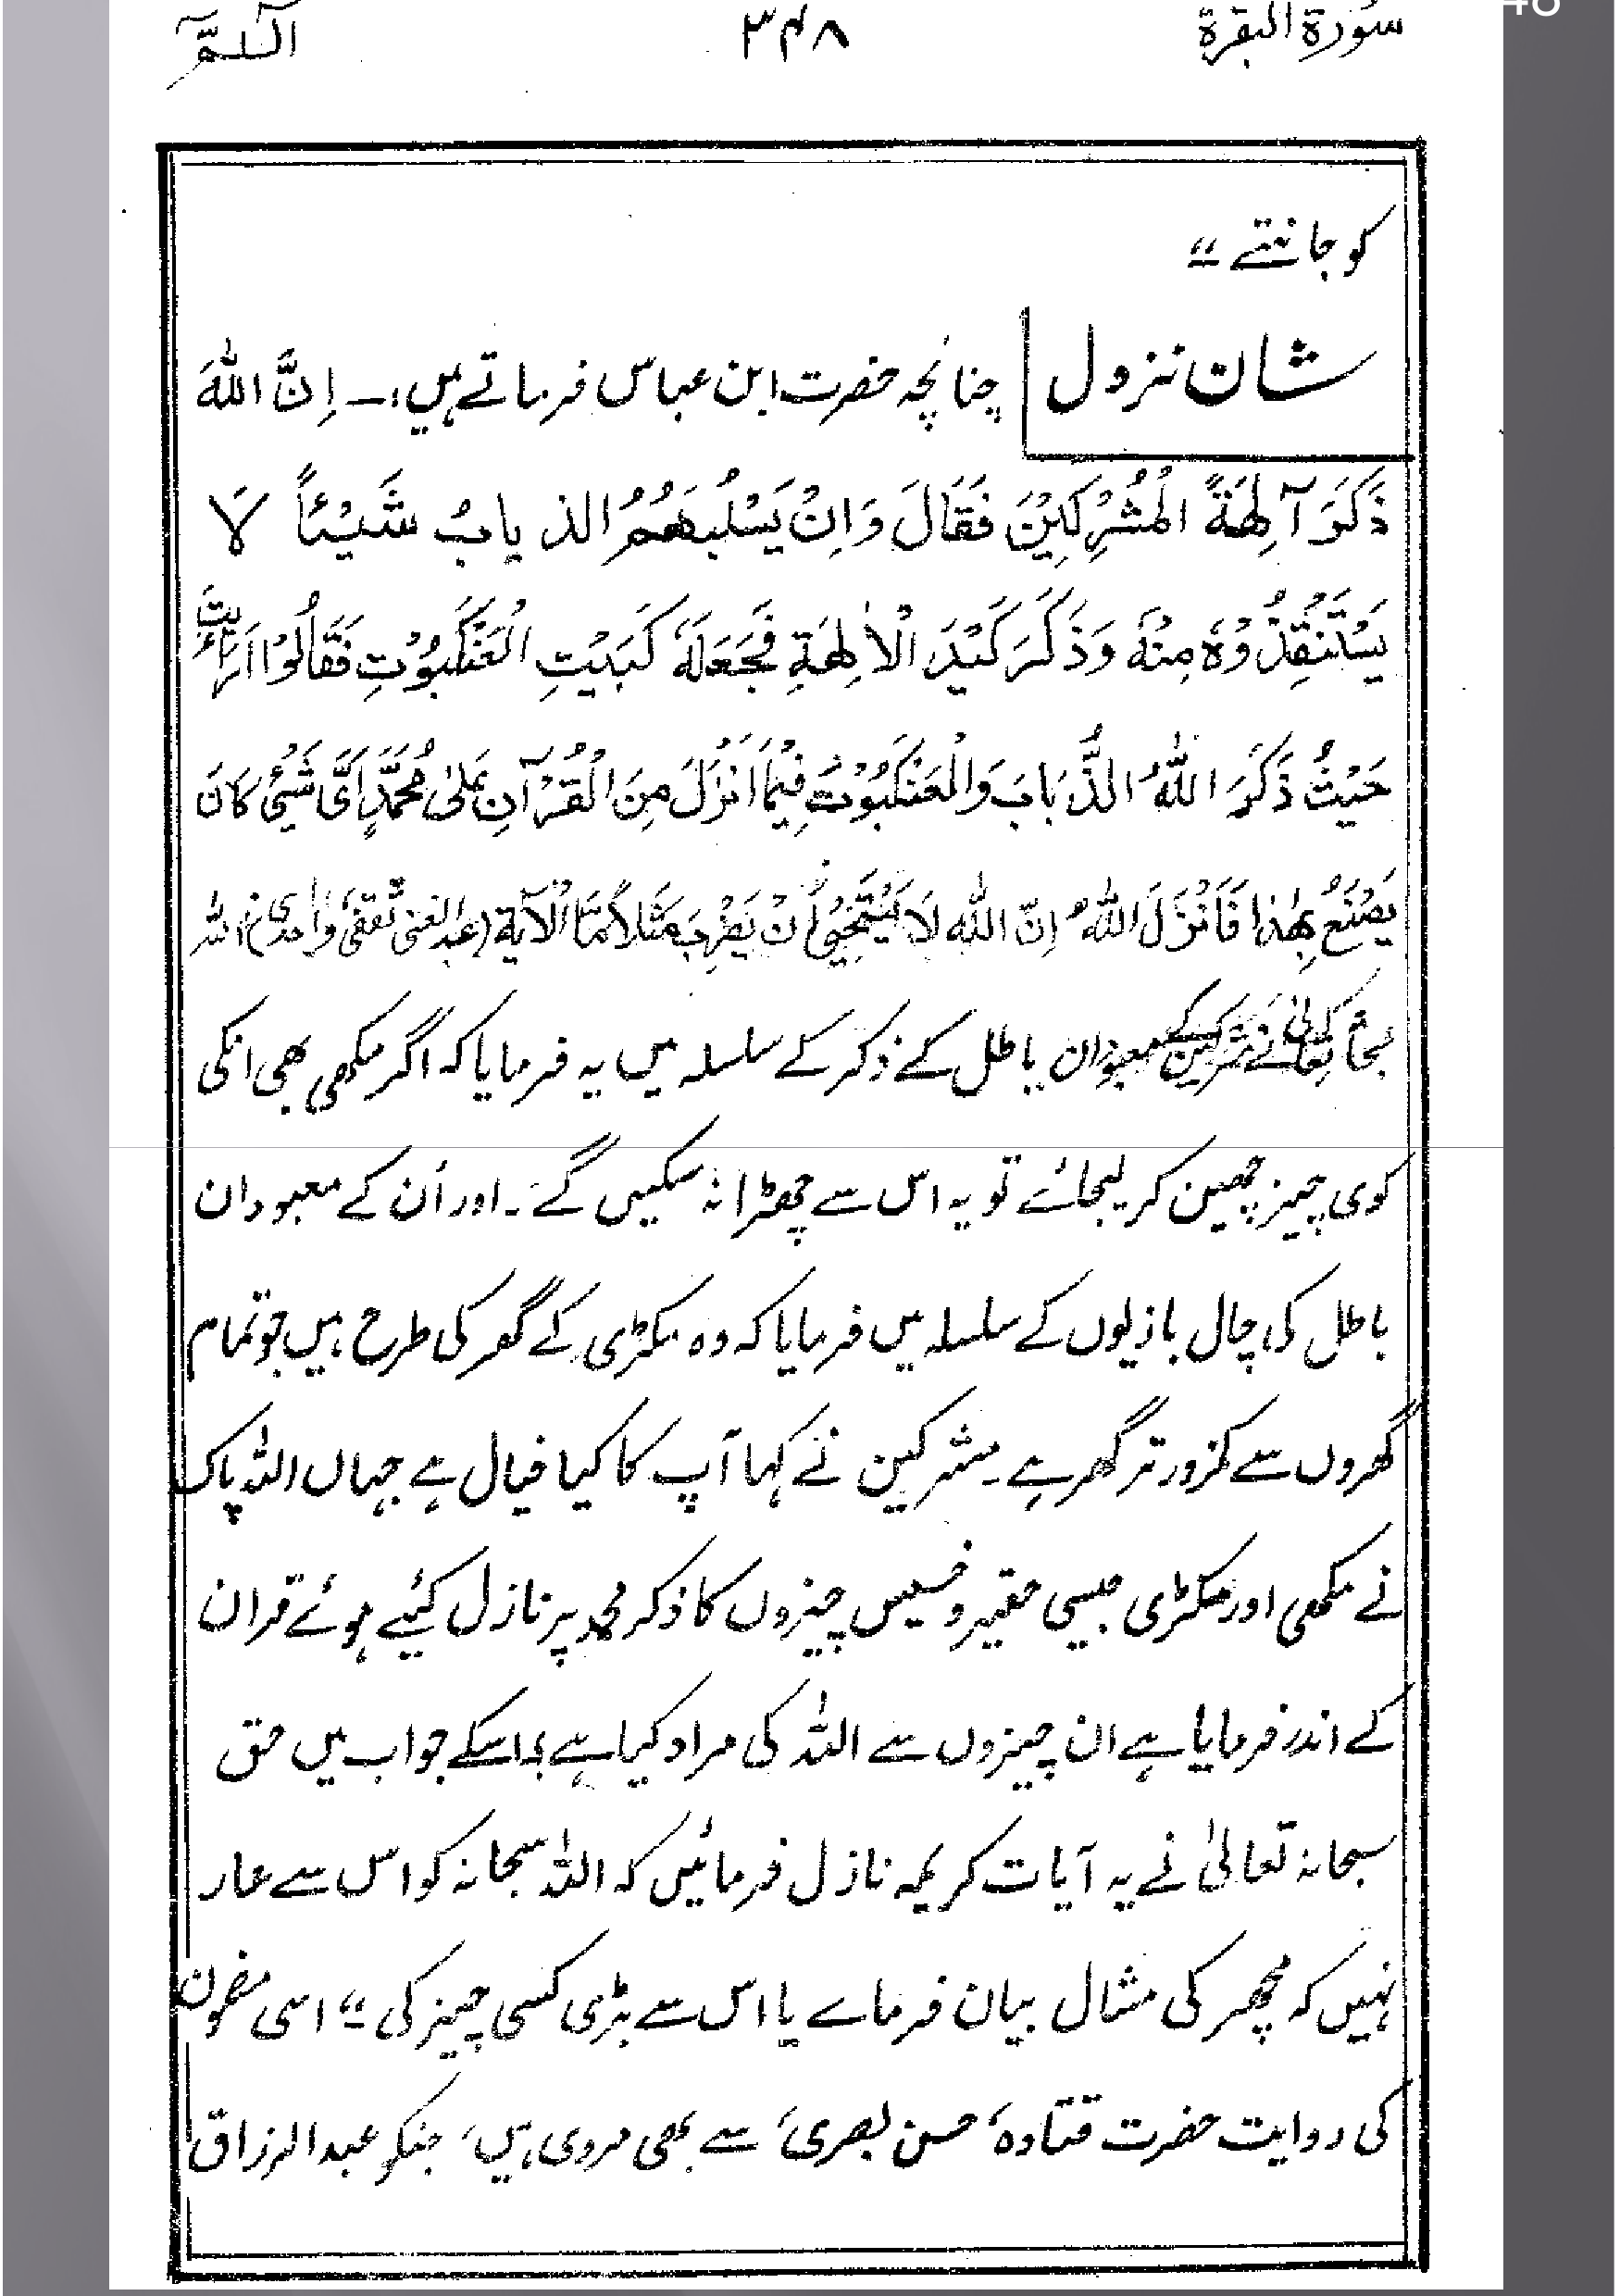 سورۃ البقرۃ ۳۴۸ الٓـلـمّٓ
کو جانتے ؍؍
شان نزول چنانچہ حضرت ابن عباس فرماتے ہیں؛۔ اِنَّ اللّٰہَ
ذَکَرَ آلِهَةَ الْمُشْرِکِیْنَ فَقَالَ وَاِنْ یَسْلُبْهُمُ الذبابُ شَیْئاً لَا
یَسْتَنْقِذُوْهُ مِنْهُ وَذَکَرَ کَیْدَ الْاٰلِهَةِ فَجَعَلَهُ کَبَیْتِ الْعَنْکَبُوْتِ فَقَالُوْا اَرَاَیْتَ
حَیْثُ ذَکَرَ اللّٰهُ الذُّبَابَ وَالْعَنْکَبُوْتَ فِیْمَا اَنْزَلَ مِنَ الْقُرْآنِ عَلیٰ مُحَمَّدٍ اَیَّ شَیْئٍ کَانَ
یَصْنَعُ بِهٰذا فَاَنْزَلَ اللّٰهُ اِنَّ اللّٰه لَا یَسْتَحْیٖ اَنْ یَضْرِبَ مَثَلاً مَّا الْآیة (عبدالغنی ثقفی واحدی) اللہ
سبحانہ تعالیٰ نے مشرکین کے معبودان باطل کے ذکر کے سلسلہ میں یہ فرمایا کہ اگر مکھی بھی انکی
کوی چیز چھین کر لیجائے تو یہ اس سے چھڑا نہ سکیں گے۔ اور اُن کے معبودان
باطل کی چال بازیوں کے سلسلہ میں فرمایا کہ وہ مکڑی کے گھر کی طرح ہیں جو تمام
گھروں سے کمزور تر گھر ہے۔ مشرکین نے کہا آپ کا کیا خیال ہے جہاں اللہ پاک
نے مکھی اور مکڑی جیسی حقیر و خسیس چیزوں کا ذکر محمد پر نازل کئیے ہوئے قران
کے اندر فرمایا ہے ان چیزوں سے اللہ کی مراد کیا ہے؟ اسکے جواب میں حق
سبحانہ تعالیٰ نے یہ آیات کریمہ نازل فرمائیں کہ اللہ سبحانہ کو اس سے عار
نہیں کہ مچھر کی مثال بیان فرماے یا اس سے بڑی کسی چیز کی ؍؍ اسی مضمون
کی روایت حضرت قتادہ، حسن بصری، سے بھی مروی ہیں، جنکو عبدالرزاق